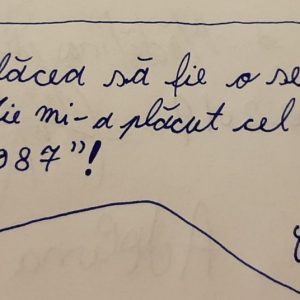 lăcea să fie o se
ie mi-a plăcut cel
987"!